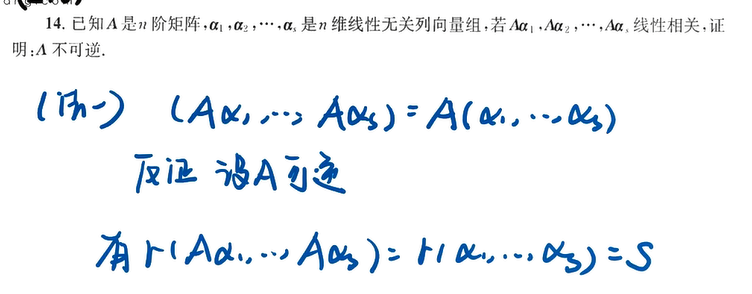 14. 已知A是n阶矩阵,α₁,α₂,⋯,αₛ是n维线性无关列向量组,若Aα₁,Aα₂,⋯,Aαₛ线性相关,证
明:A不可逆.
(法一) (Aα₁,⋯, Aαₛ)=A(α₁,⋯,αₛ)
反证 设A可逆
有 r(Aα₁,⋯, Aαₛ)=r(α₁,⋯,αₛ)=S